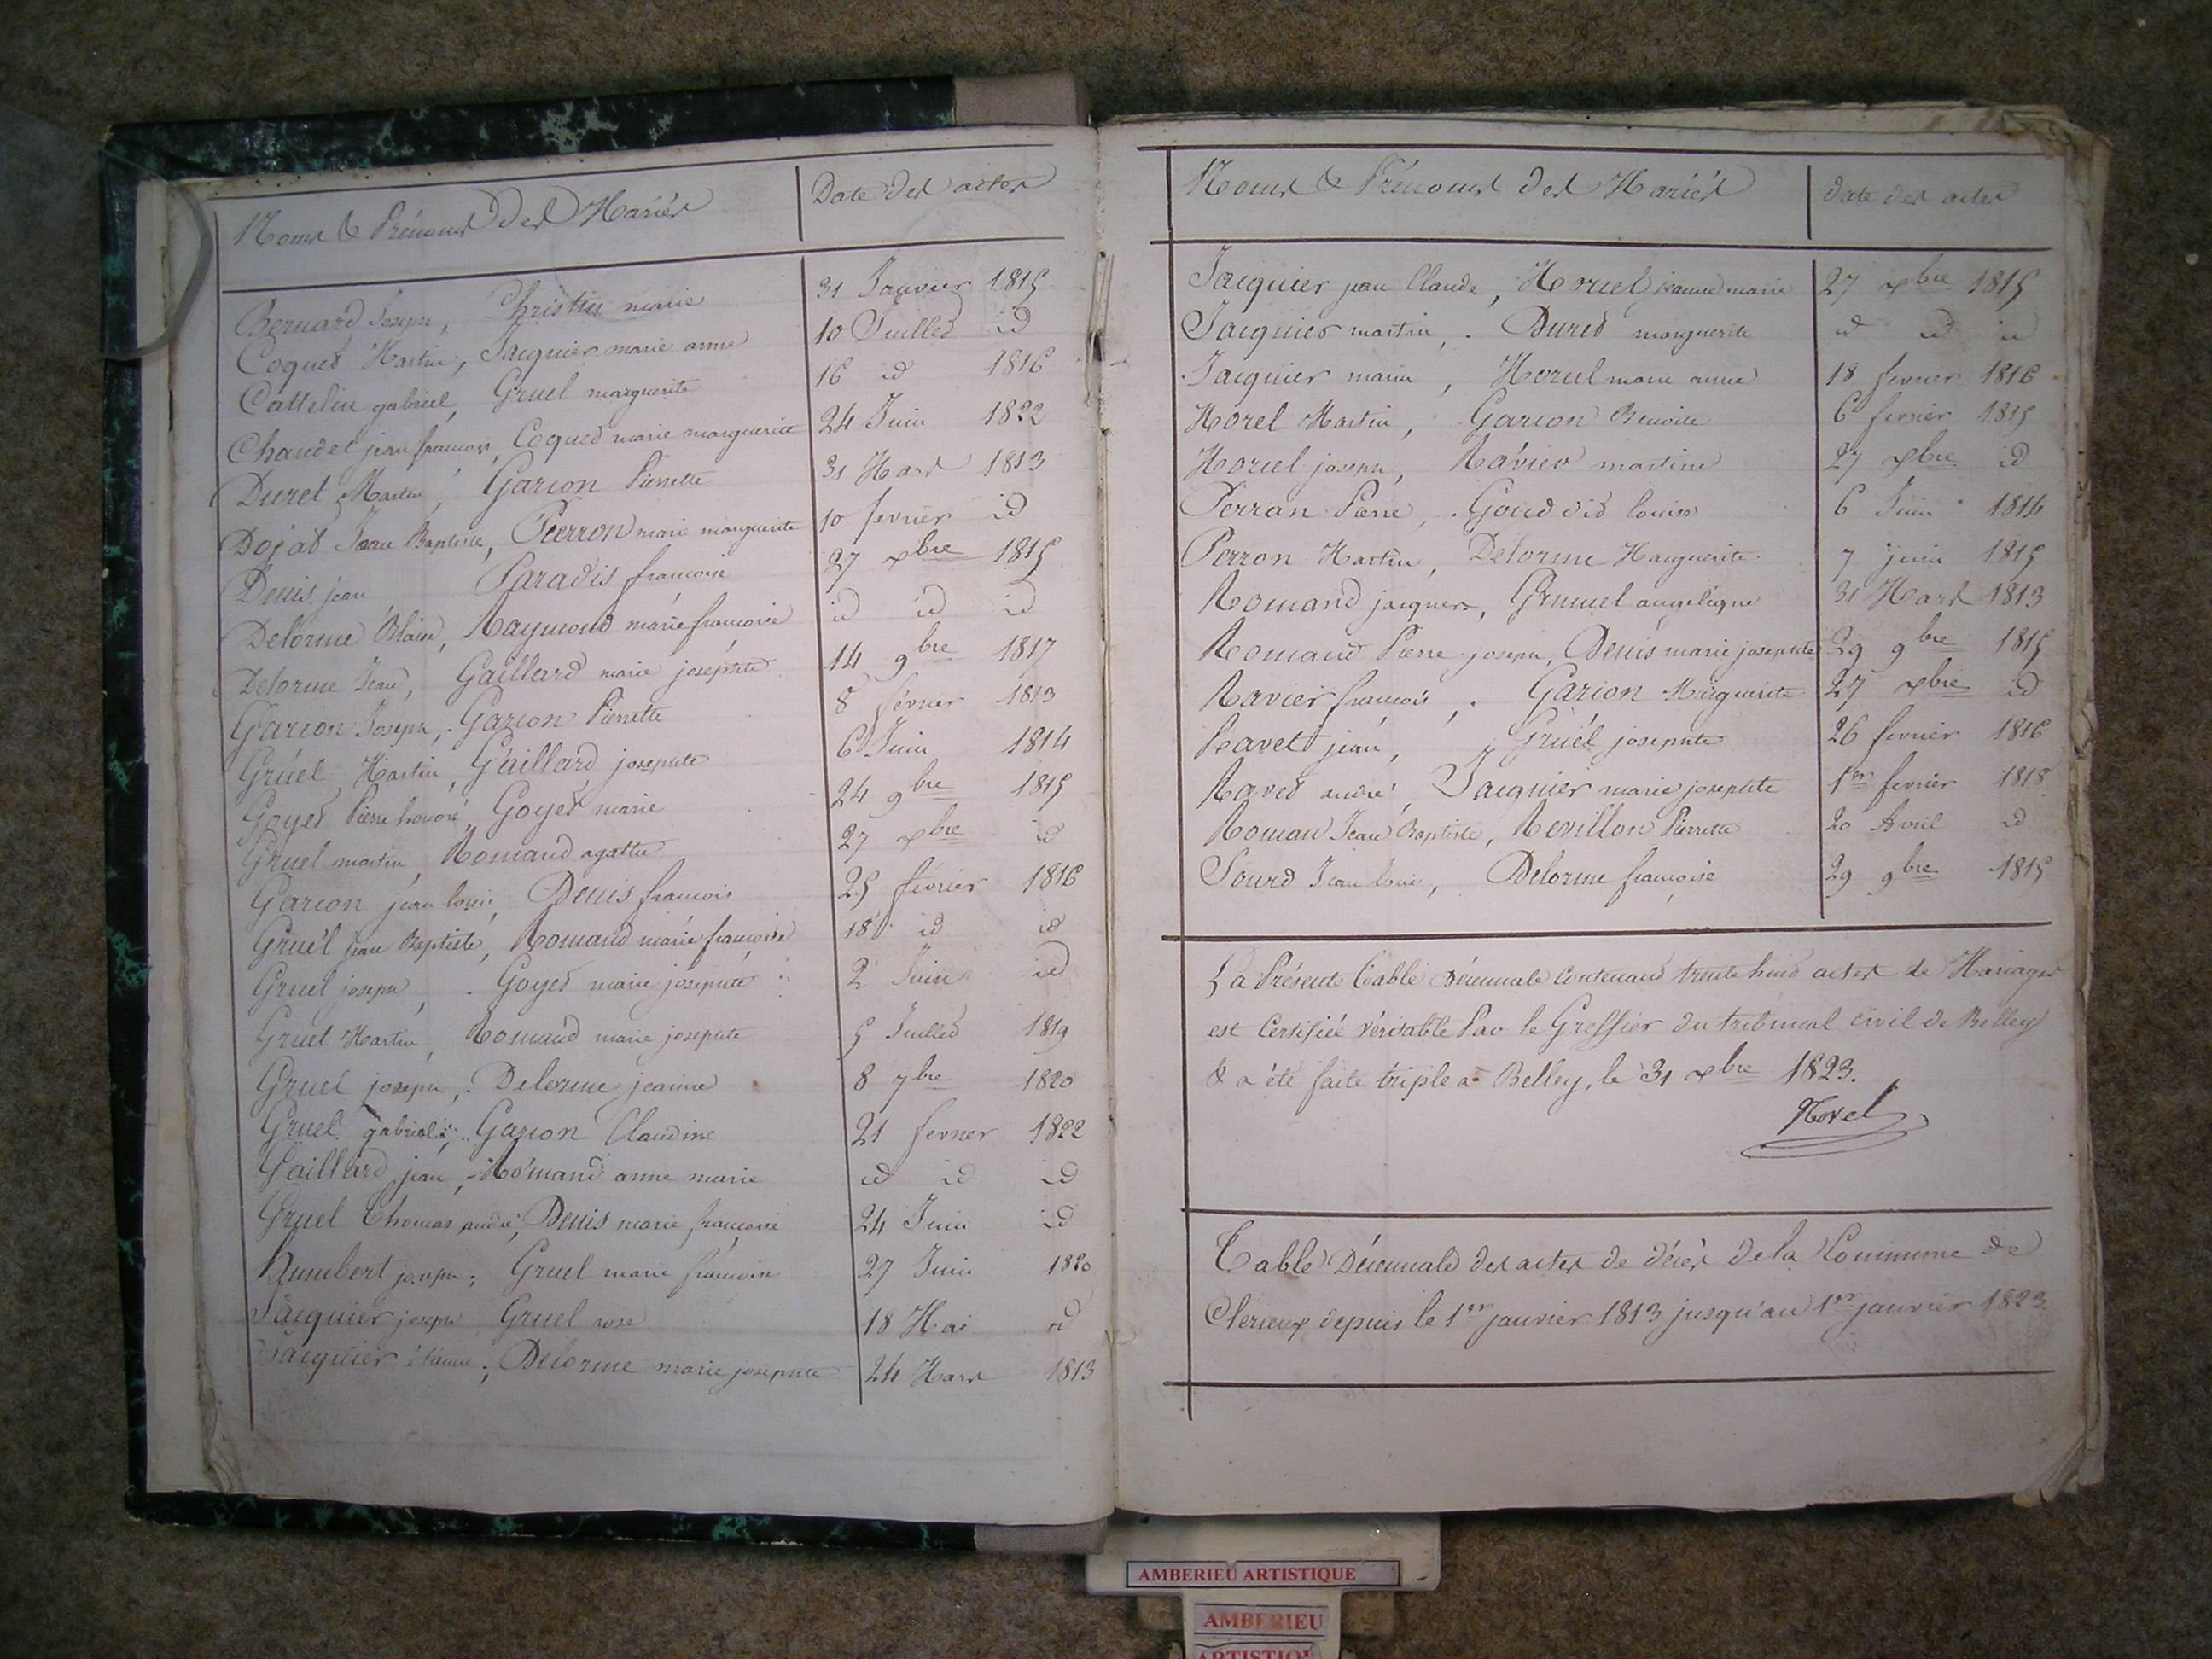 Noms & Prénoms des Mariés Date des actes
Bernard Joseph, Christin marie 31 Janvier 1815
Coquet Martin, Jacquier marie anne 10 Juillet id
Cattelin gabriel, Gruel marguerite 16 id 1816
Chaudet jean francois, Coquet marie marguerite 24 Juin 1822
Duret Martin, Garion Pierrette 31 Mars 1813
Dojat Jean Baptiste, Peerron marie marguerite 10 fevrier id
Denis jean Paradis francoise 27 xbre 1815
Delorme Blaise, Raymond marie françoise id id id
Delorme Jean, Gaillard marie josephte 14 9bre 1817
Garion Joseph, Garion Pierrette 8 février 1813
Gruel Martin, Gaillard josephte 6 Juin 1814
Goyet Pierre honoré, Goyet marie 24 9bre 1815
Gruel martin, Romand agathe 27 xbre id
Garion jean louis, Denis francois 25 février 1816
Gruel jean Baptiste, Romand marie françoise 18 id id
Gruel joseph, Goyet marie josephte 2 Juin id
Gruel Martin, Romand marie josephte 5 Juillet 1819
Gruel joseph, Delorme jeanne 8 7bre 1820
Gruel gabriel, Garion Claudine 21 fevrier 1822
Gaillard jean, Romand anne marie id id id
Gruel Thomas andré, Denis marie françoise 24 Juin id
Humbert joseph; Gruel marie francoise 27 Juin 1820
Jacquier joseph Gruel rose 18 Mai id
Jacquier étienne; Delorme marie josephte 24 Mars 1813
Noms & Prénoms des Mariés date des actes
Jacquier jean Claude, Morel jeanne marie 27 xbre 1815
Jacquier martin, Duret marguerite id id id
Jacquier marin, Morel marie anne 18 fevrier 1816
Morel Martin, Garion Benoite 6 fevrier 1815
Morel joseph, Ravier martine 27 xbre id
Perran Pierre, louise 6 Juin 1814
Perron Martin, Delorme Marguerite 7 juin 1815
Romand jacques, Grumel angelique 31 Mars 1813
Romand Pierre joseph, Denis marie josephte 29 9bre 1815
Ravier francois, Garion Marguerite 27 xbre id
Ravet jean, Gruel josephte 26 fevrier 1816
Ravet andré, Jacquier marie josephte 1er fevrier 1818
Roman Jean Baptiste, Revillon Pierrette 20 Avril id
Sourd Jean louis, Delorme françoise 29 9bre 1815
La Présente Table Décennale Contenant trente huit actes de Mariages
est Certifiée véritable Par le Greffier du tribunal civil de Belley
& a été faite triple a Belley, le 31 xbre 1823.
Morel
Table Décennale des actes de décès de la Commune de
Clerieux depuis le 1er janvier 1813 jusqu'au 1er janvier 1823.
AMBERIEU ARTISTIQUE
AMBERIEU
ARTISTIQUE